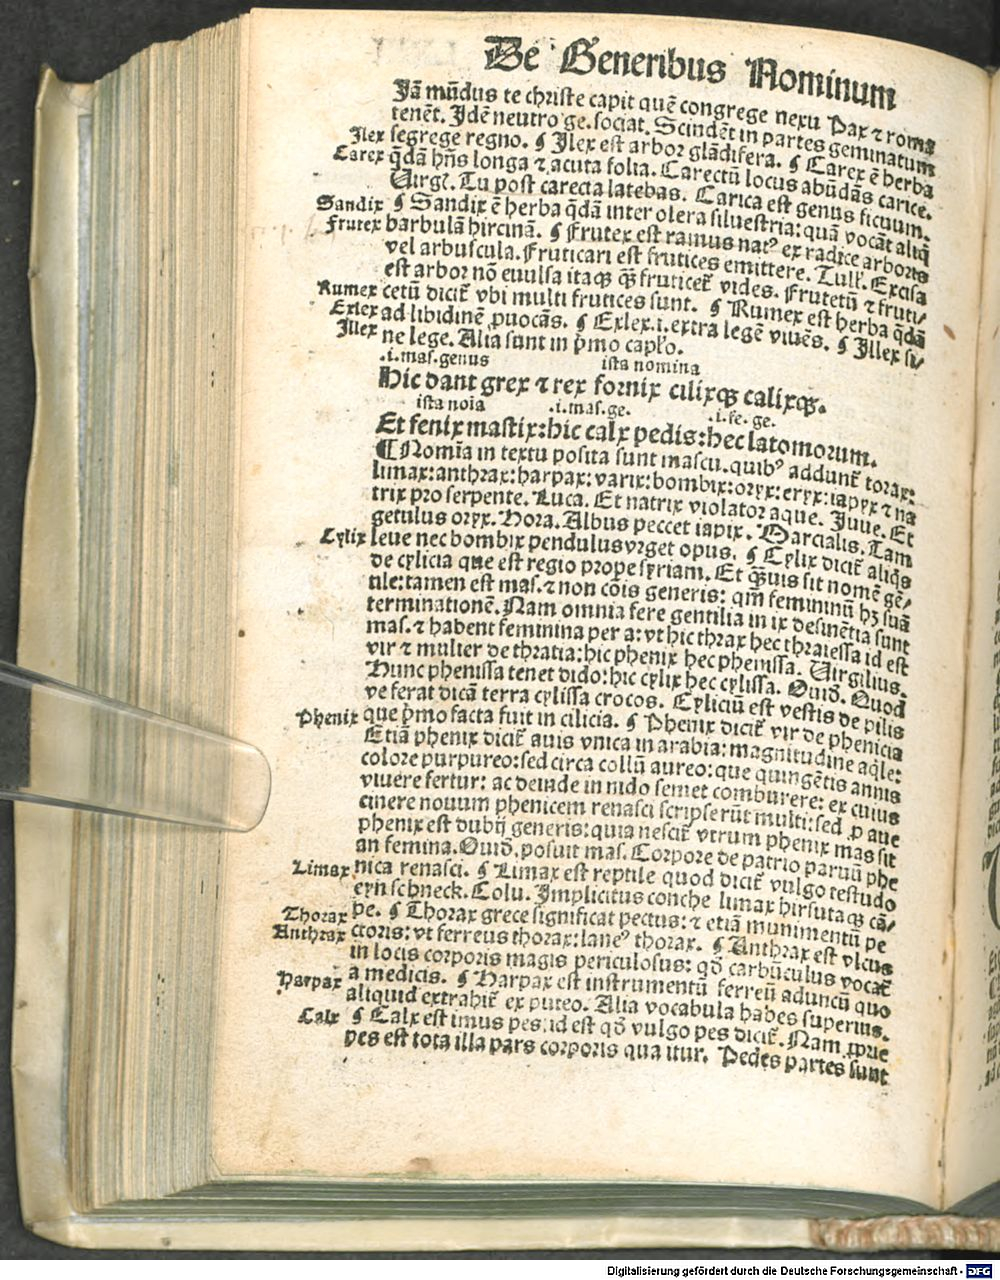 De Generibus Nominum
Jã mũdus te christe capit quē congrege nexu Pax ⁊ roma
tenēt. Idē neutro ge. sociat. Scindēt in partes geminatum
Ilex segrege regno. ¶ Ilex est arbor glãdifera. ¶ Carex ē herba
Carex q̃dã hñs longa ⁊ acuta folia. Carectũ locus abũdãs carice.
Virgl̃. Tu post carecta latebas. Carica est genus ficuum.
Sandix ¶ Sandix ē herba q̃dã inter olera siluestria: quã vocãt aliq̃
barbulã hircinã. ¶ Frutex est ramus natꝰ ex radice arboris
Frutex vel arbuscula. Fruticari est frutices emittere. Tull̃. Excisa
est arbor nõ euulsa itaqꝫ q̃ȝ fruticet̃ vides. Frutetũ ⁊ fruti/
cetũ dicit̃ vbi multi frutices sunt. ¶ Rumex est herba q̃dã
Rumex ad libidinē ꝓuocãs. ¶ Exlex .i. extra legē viuēs. ¶ Illex si/
Exlex
Illex ne lege. Alia sunt in p̃mo capl̃o.
.i. mas. genus ista nomina
Hic dant grex ⁊ rex fornix cilixqꝫ calixqꝫ.
ista noĩa .i. mas. ge. .i. fe. ge.
Et fenix mastix: hic calx pedis: hec latomorum.
¶ Nomĩa in textu posita sunt mascu. quibꝰ addunt̃ torax:
limax: anthrax: harpax: varix: bombix: oryx: eryx: iapyx ⁊ na
trix pro serpente. Luca. Et natrix violator aque. Juue. Et
getulus oryx. Hora. Albus peccet iapix. Marcialis. Tam
leue nec bombix pendulus vrget opus. ¶ Cylix dicit̃ aliq̃s
Cylix de cylicia que est regio prope syriam. Et q̃ȝuis sit nomē gē/
tile: tamen est mas. ⁊ non cõis generis: qm̃ femininũ hȝ suã
terminationē. Nam omnia fere gentilia in ix desinētia sunt
mas. ⁊ habent feminina per a: vt hic thrax hec thraiessa id est
vir ⁊ mulier de thratia: hic phenix hec phenissa. Virgilius.
Nunc phenissa tenet dido: hic cylix hec cylissa. Ouid̃. Quod
ve ferat dicã terra cylissa crocos. Cyliciũ est vestis de pilis
que p̃mo facta fuit in cilicia. ¶ Phenix dicit̃ vir de phenicia
Phenix Etiã phenix dicit̃ auis vnica in arabia: magnitudine aq̃le:
colore purpureo: sed circa collũ aureo: que quingētis annis
viuere fertur: ac deinde in nido semet comburere: ex cuius
cinere nouum phenicem renasci scripserũt multi: sed ꝓ aue
phenix est dubij generis: quia nescit̃ vtrum phenix mas sit
an femina. Ouid̃. posuit mas. Corpore de patrio paruũ phe
nica renasci. ¶ Limax est reptile quod dicit̃ vulgo testudo
Limax eyn schneck. Colu. Implicitus conche limax hirsutaqꝫ cã/
pe. ¶ Thorax grece significat pectus: ⁊ etiã munimentũ pe
Thorax ctoris: vt ferreus thorax: laneꝰ thorax. ¶ Anthrax est vlcus
Anthrax in locis corporis magis periculosus: qd̃ carbũculus vocat̃
a medicis. ¶ Harpax est instrumentũ ferreũ aduncũ quo
Harpax aliquid extrahit̃ ex puteo. Alia vocabula habes superius.
Calx ¶ Calx est imus pes: id est qd̃ vulgo pes dicit̃. Nam ꝓprie
pes est tota illa pars corporis qua itur. Pedes partes sunt
Digitalisierung gefördert durch die Deutsche Forschungsgemeinschaft - DFG